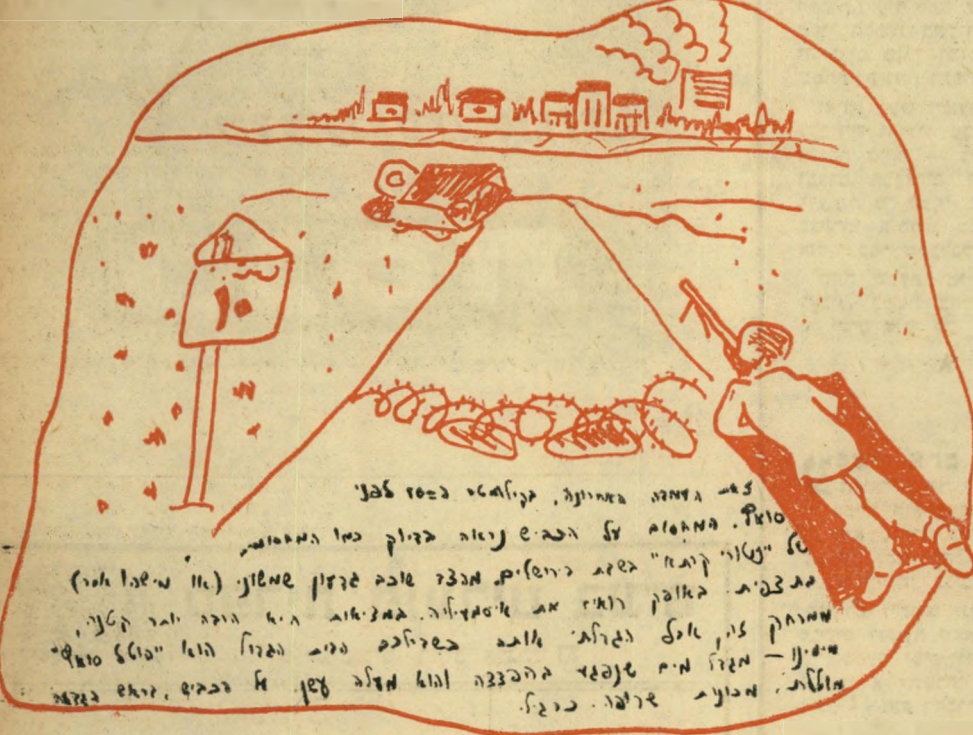 10
זאת העמדה האחרונה, בקילומטר לפני
סואץ. המחסום על הכביש נראה בדיוק כמו המחסום
של "נטורי קרתא" בשבת בירושלים. מהצד שוכב גדעון שמשוני (או מישהו אחר)
בתצפית. באופק רואים את איסמעיליה. במציאות היא הרבה יותר קטנה,
ממרחק זה, אבל הגדלתי אותה בשבילכם. הבית הגדול הוא סואץ"
מימינו – מגדל מים שנפגע בהפצצה והוא מעלה עשן. על הכביש, בראש הגבעה
מוטלת מכונית שרופה. כרגיל.